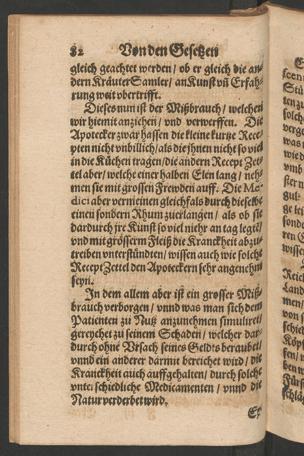 82 Von den Gesetzen
gleich geachtet werden / ob er gleich die an-
dern Kräuter Samler / an Kunst vñ Erfah-
rung weit obertrifft.
Dieses nun ist der Mißbrauch / welchen
wir hiemit anziehen / vnd verwerffen. Die
Apotecker zwar hassen die kleine kurtze Rece-
pten nicht vnbillich / als die jhnen nicht so viel
in die Küchen tragen / die andern Recept Zet-
tel aber / welche einer halben Elen lang / neh-
men sie mit grossen Frewden auff. Die Me-
dici aber vermeinen gleichfals durch dieselbe
einen sondern Rhum zuerlangen / als ob sie
dardurch jre Kunst so viel mehr an tag legten/
vnd mit grösserm Fleiß die Kranckheit abzu-
treiben vnterstünden / wissen auch wie solche
Recept Zettel den Apoteckern sehr angenehm
seyn.
In dem allem aber ist ein grosser Miß-
brauch verborgen / vnnd was man sich dem
Patienten zu Nutz anzunehmen simuliret/
gereychet zu seinem Schaden / welcher dar-
durch ohne Vrsach seines Gelds beraubet/
vnnd ein anderer darmit bereichet wird / die
Kranckheit auch auffgehalten / durch solche
vnterschiedliche Medicamenten / vnnd die
Natur verderbet wird.